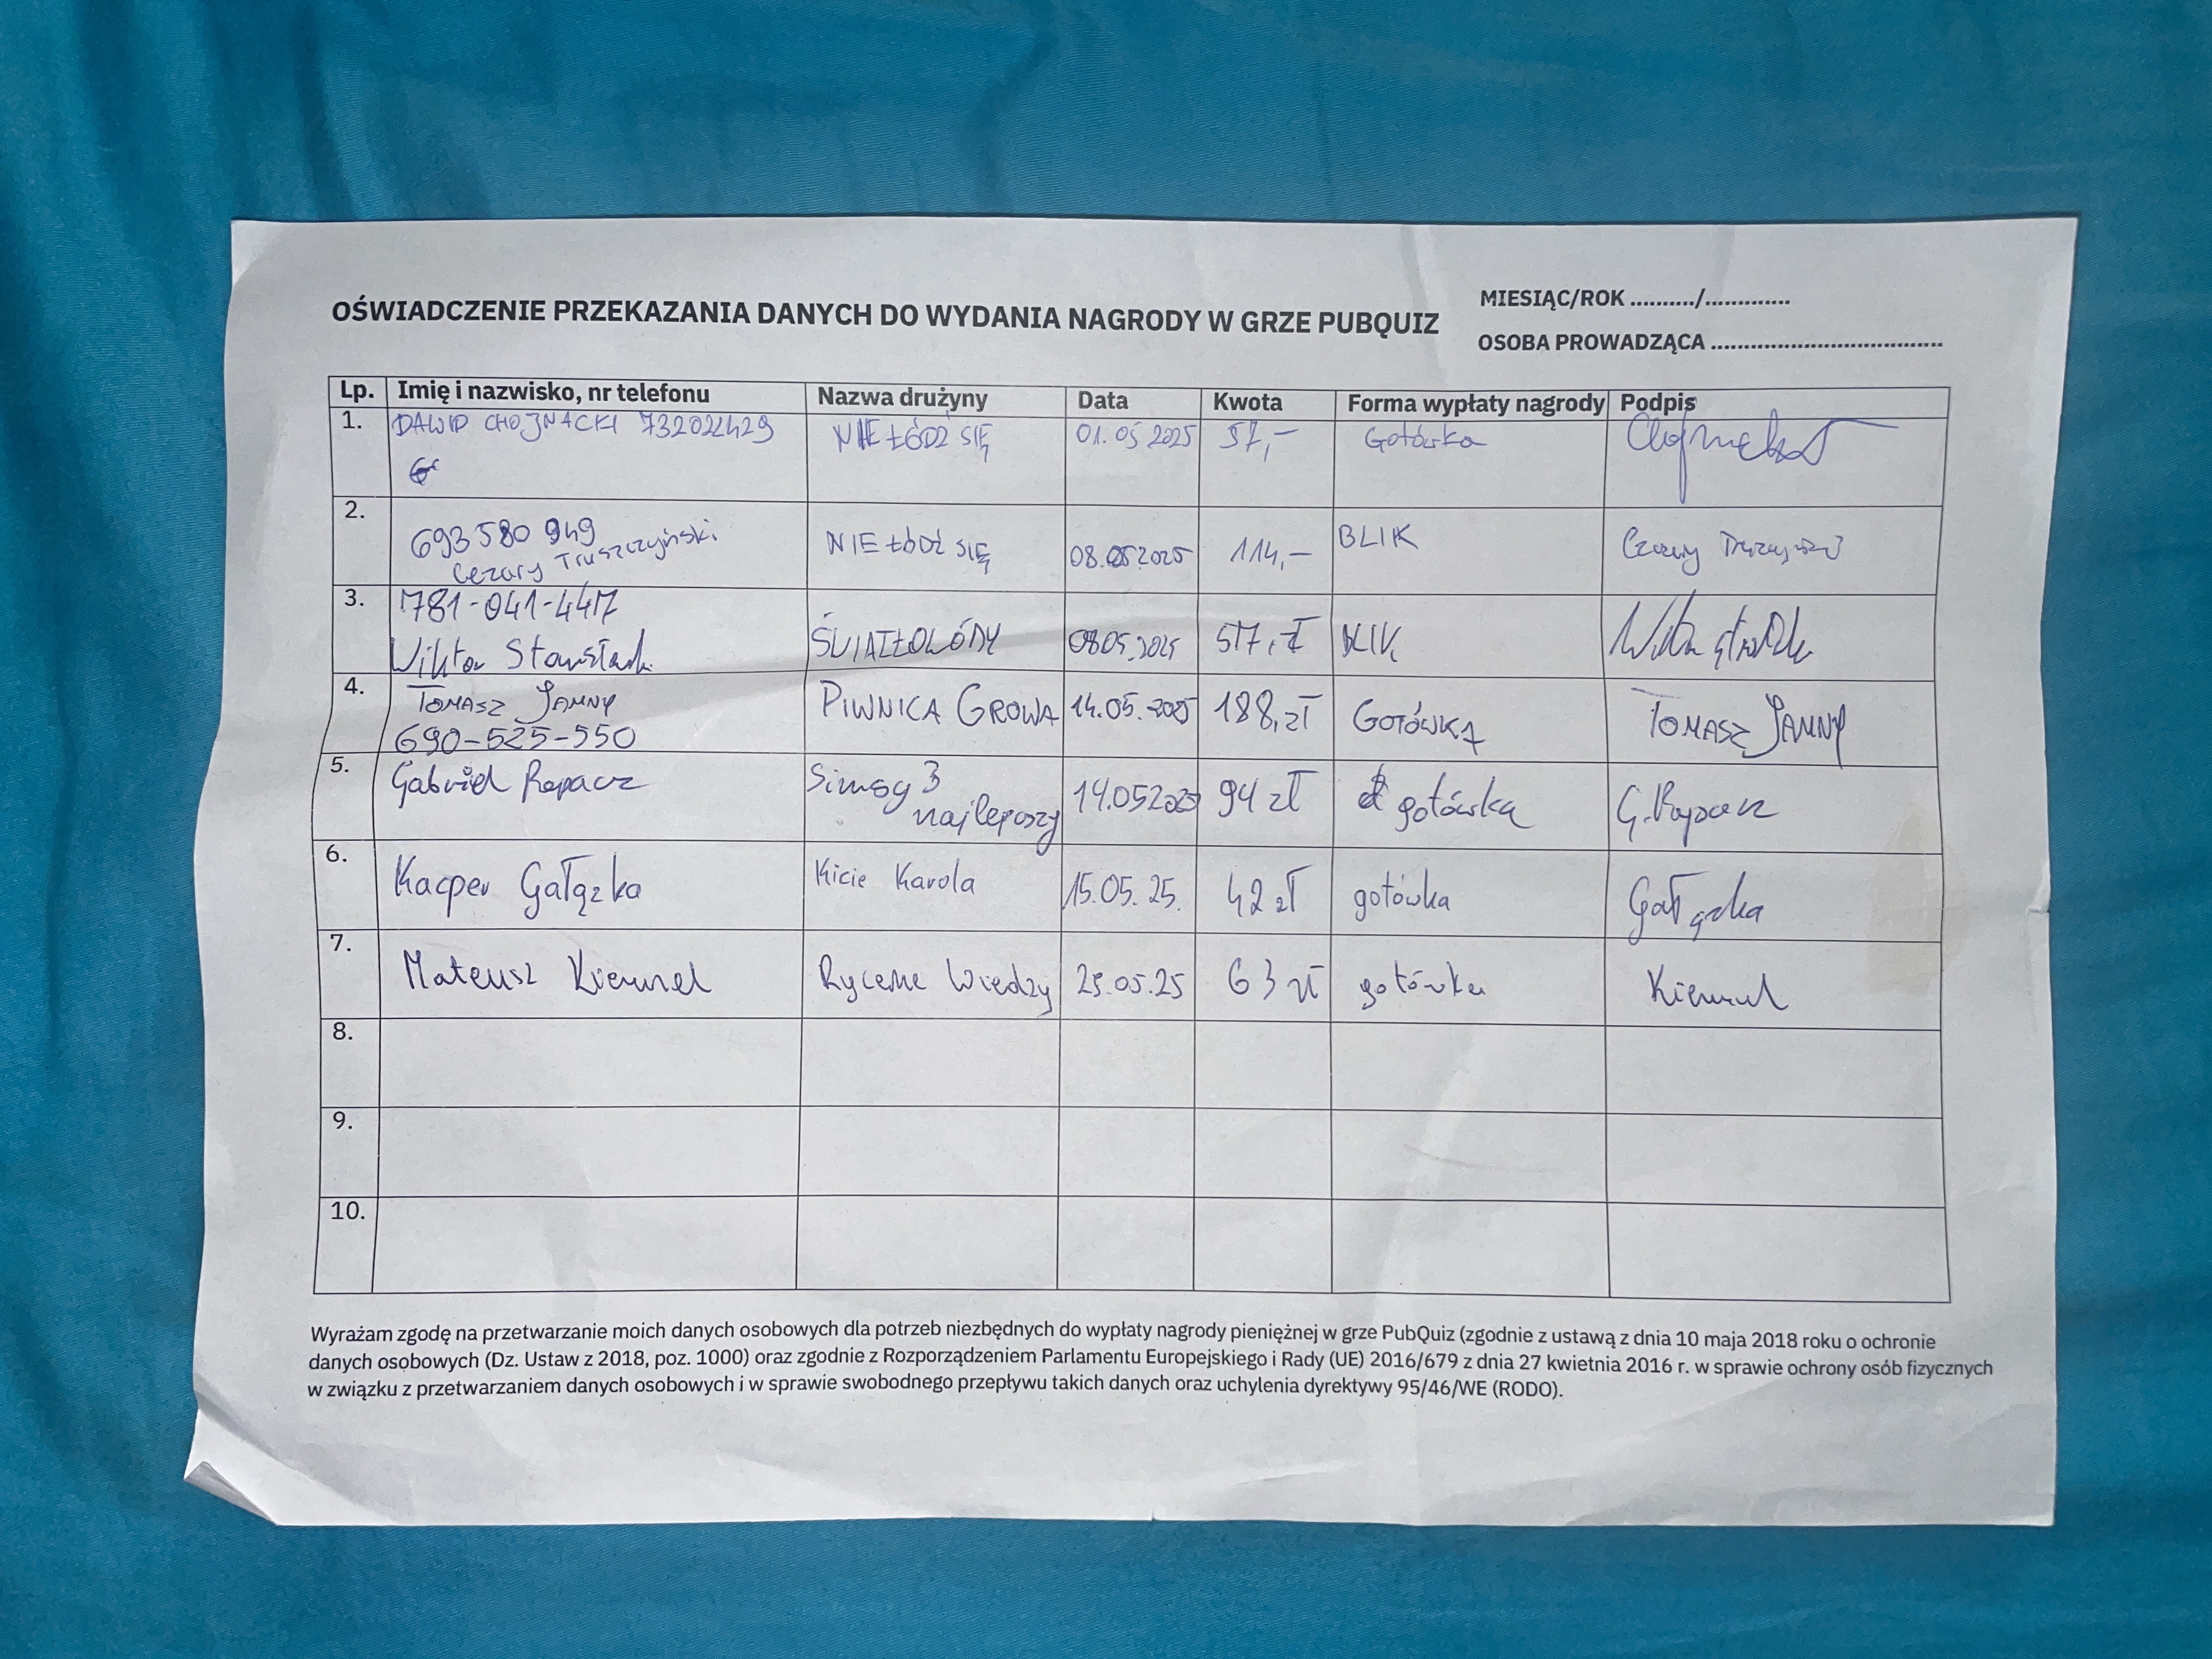 OŚWIADCZENIE PRZEKAZANIA DANYCH DO WYDANIA NAGRODY W GRZE PUBQUIZ
MIESIĄC/ROK ........../.............
OSOBA PROWADZĄCA ...................................
Lp. Imię i nazwisko, nr telefonu Nazwa drużyny Data Kwota Forma wypłaty nagrody Podpis
1. DAWID CHOJNACKI 732022429 NIE ŁÓDŹ SIĘ 01.05 2025 57,- Gotówka
2. 693 580 949 NIE ŁÓDŹ SIĘ 08.05.2025 114,- BLIK
Cezary Truszczyński
3. 781-041-447 08.05.2025 57,- zł BLIK
Wiktor
4. TOMASZ JAMNY PIWNICA GROWA 14.05.2025 188,zł GOTÓWKA TOMASZ JAMNY
690-525-550
5. Gabriel Rapacz Simsy 3 14.05 2025 94 zł gotówka G. Rapacz
najlepszy
6. Kacper Gałązka Kicie Karola 15.05.25. 42 zł gotówka Gałązka
7. Mateusz Rycerze Wiedzy 25.05.25 63 zł gotówka
8.
9.
10.
Wyrażam zgodę na przetwarzanie moich danych osobowych dla potrzeb niezbędnych do wypłaty nagrody pieniężnej w grze PubQuiz (zgodnie z ustawą z dnia 10 maja 2018 roku o ochronie
danych osobowych (Dz. Ustaw z 2018, poz. 1000) oraz zgodnie z Rozporządzeniem Parlamentu Europejskiego i Rady (UE) 2016/679 z dnia 27 kwietnia 2016 r. w sprawie ochrony osób fizycznych
w związku z przetwarzaniem danych osobowych i w sprawie swobodnego przepływu takich danych oraz uchylenia dyrektywy 95/46/WE (RODO).